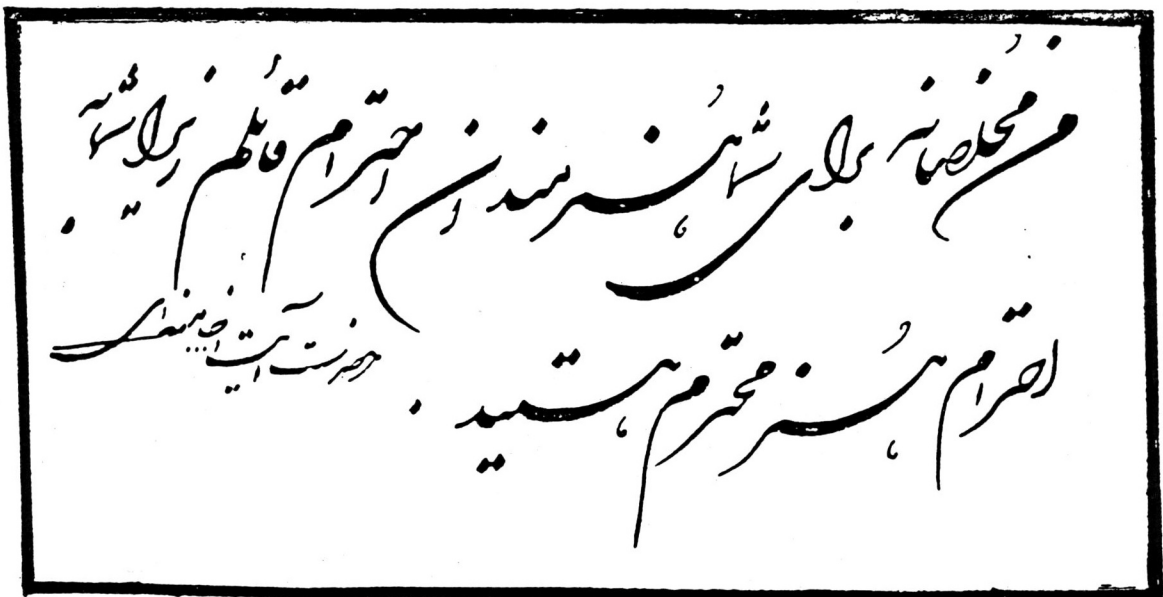 من مُخلصانه برای شما هُنرمندان احترام قائلم زیرا شما به
احترام هُنر محترم هستید .
حضرت آیت ا... خامنه‌ای